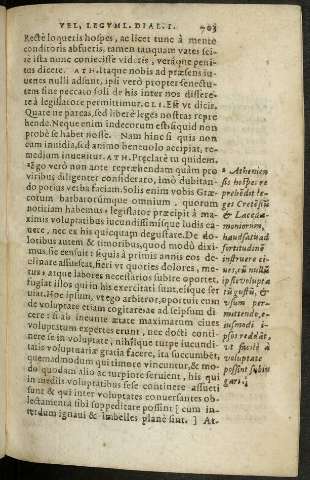 VEL, LEGVM I. DIAL. I. 703
Rectè loqueris hospes, ac licet tunc à mente
conditoris abfueris, tamen tanquam vates sci-
re ista nunc coniecisse videris, veráque peni-
tus dicere. ATH. Itaque nobis ad præsens iu-
uenes nulli adsunt, ipsi verò propter senectu-
tem sine peccato soli de his inter nos dissere-
re à legislatore permittimur. CLI. Est vt dicis.
Quare ne parcas, sed liberè leges nostras repre
hende. Neque enim indecorum est si quid non
probè se habet nosse. Nam hinc si quis non
cum inuidia, sed animo beneuolo accipiat, re-
medium inuenitur. ATH. Præclarè tu quidem.
Ego verò non ante reprehendam quàm pro
viribus diligenter considerato, imò dubitan-
do potius verba faciam. Solis enim vobis Græ-
corum barbarorúmque omnium, quorum
notitiam habemus, legislator præcipit à ma-
ximis voluptatibus iucundissimísque ludis ca-
uere, nec ex his quicquam degustare. De do-
loribus autem & timoribus, quod modò dixi-
mus, sic censuit: si quis à primis annis eos de-
clinare assuescat, fieri vt quoties dolores, me-
tus, atque labores necessarios subire oportet,
fugiat illos qui in his exercitati sunt, eísque ser
uiat. Hoc ipsum, vt ego arbitror, oportuit eum
de voluptate etiam cogitare, ac ad seipsum di-
cere: si ab ineunte ætate maximarum ciues
voluptatum expertes erunt, nec docti conti-
nere se in voluptate, nihilque turpe iucundi-
tatis voluptariæ gratia facere, ita succumbët,
quemadmodum qui timore vincuntur, & mo-
do quodam alio ac turpiore seruient, his qui
in mediis voluptatibus sese continere assueti
sunt & qui inter voluptates conuersantes ob-
lectamenta sibi suppeditare possint [ cum in-
terdum ignaui & imbelles planè sint. ] At-
Athenien
sis hospes re
prehëdit le-
ges Cretësiũ
& Lacedæ-
moniorum,
haud satis ad
fortitudinë
instruere ci-
ues, cũ nullũ
ipsis volupta
tũ gustũ, &
vsum per-
mittendo, e-
iusmodi i-
psos reddãt,
vt facilè à
voluptate
possint subiu
gari.